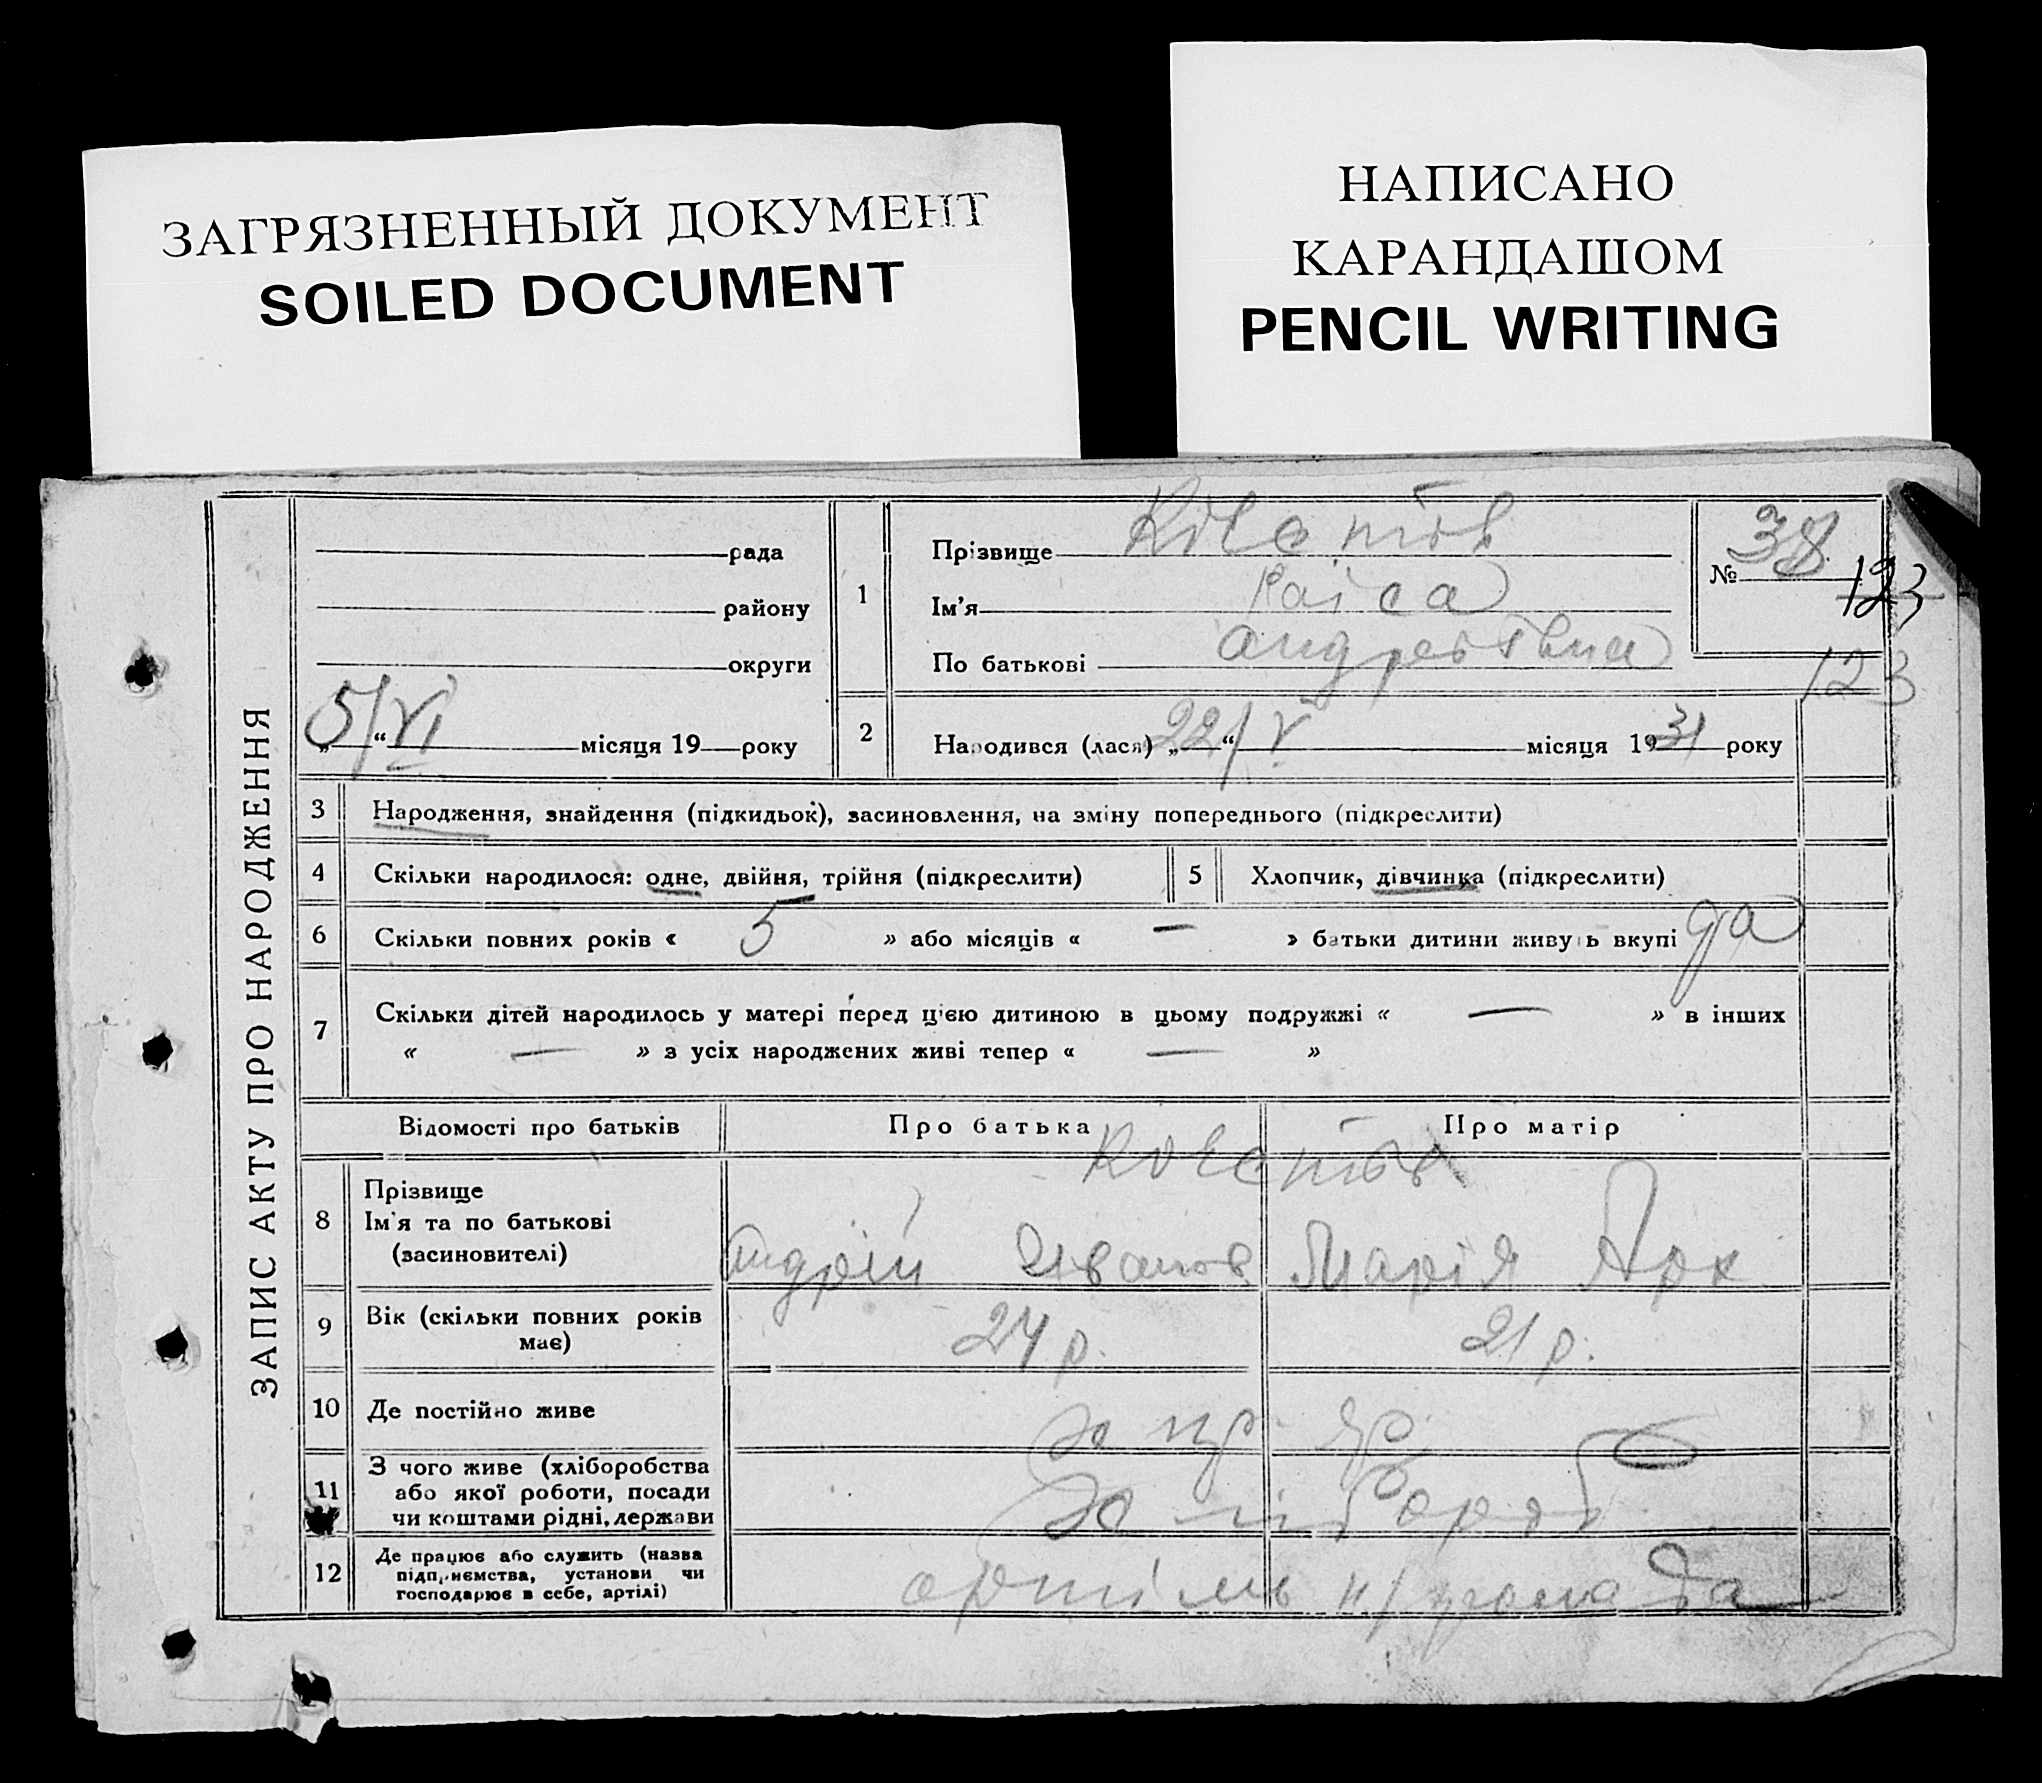 ЗАГРЯЗНЕННЫЙ ДОКУМЕНТ
SOILED DOCUMENT
НАПИСАНО
КАРАНДАШОМ
PENCIL WRITING
ЗАПИС АКТУ ПРО НАРОДЖЕННЯ
рада
району
округи
5/VI „ “ місяця 19 року
1
Прізвище
Ім'я Раіса
По батькові
№ 38
123
123
2 Народився (лася) „ 22/V “ місяця 1931 року
3 Народження, знайдення (підкидьок), засиновлення, на зміну попереднього (підкреслити)
4 Скільки народилося: одне, двійня, трійня (підкреслити) 5 Хлопчик, дівчинка (підкреслити)
6 Скільки повних років « 5 » або місяців « — » батьки дитини живуть вкупі да
7 Скільки дітей народилось у матері перед цією дитиною в цьому подружжі « — » в інших
« — » з усіх народжених живі тепер « — »
Відомості про батьків Про батька Про матір
8 Прізвище
Ім'я та по батькові
(засиновителі) Андрій Иванов Марія
9 Вік (скільки повних років
має) 24 р. 21 р.
10 Де постійно живе
11 З чого живе (хліборобства
або якої роботи, посади
чи коштами рідні, держави
12 Де працює або служить (назва
підприємства, установи чи
господарює в себе, артілі) артіль